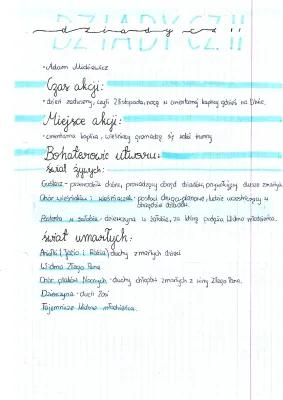 DZIADY CZ II
dziady cz II
•Adam Mickiewicz
Czas akcji:
•dzień zaduszny, czyli 2 listopada, nocą w cmentarnej kaplicy gdzieś na Litwie.
Miejsce akcji:
•cmentarna kaplica, wieśniacy gromadzą się wokół trumny
Bohaterowie utworu:
świat żywych:
Guślarz - przewodnik chóru, prowadzący obrzęd dziadów, przywołujący dusze zmarłych
Chór wieśniaków i wieśniaczek - postaci drugoplanowe, ludzie uczestniczący w
obrzędzie dziadów.
Pasterka w żałobie - dziewczyna w żałobie, za którą podąża Widmo młodzieńca.
świat umarłych:
Aniołki (Józio i Rózia) duchy zmarłych dzieci
Widmo Złego Pana
Chór ptaków Nocnych - duchy chłopów zmarłych z winy Złego Pana.
Dziewczyna - duch Zosi
Tajemnicze Widmo młodzieńca.